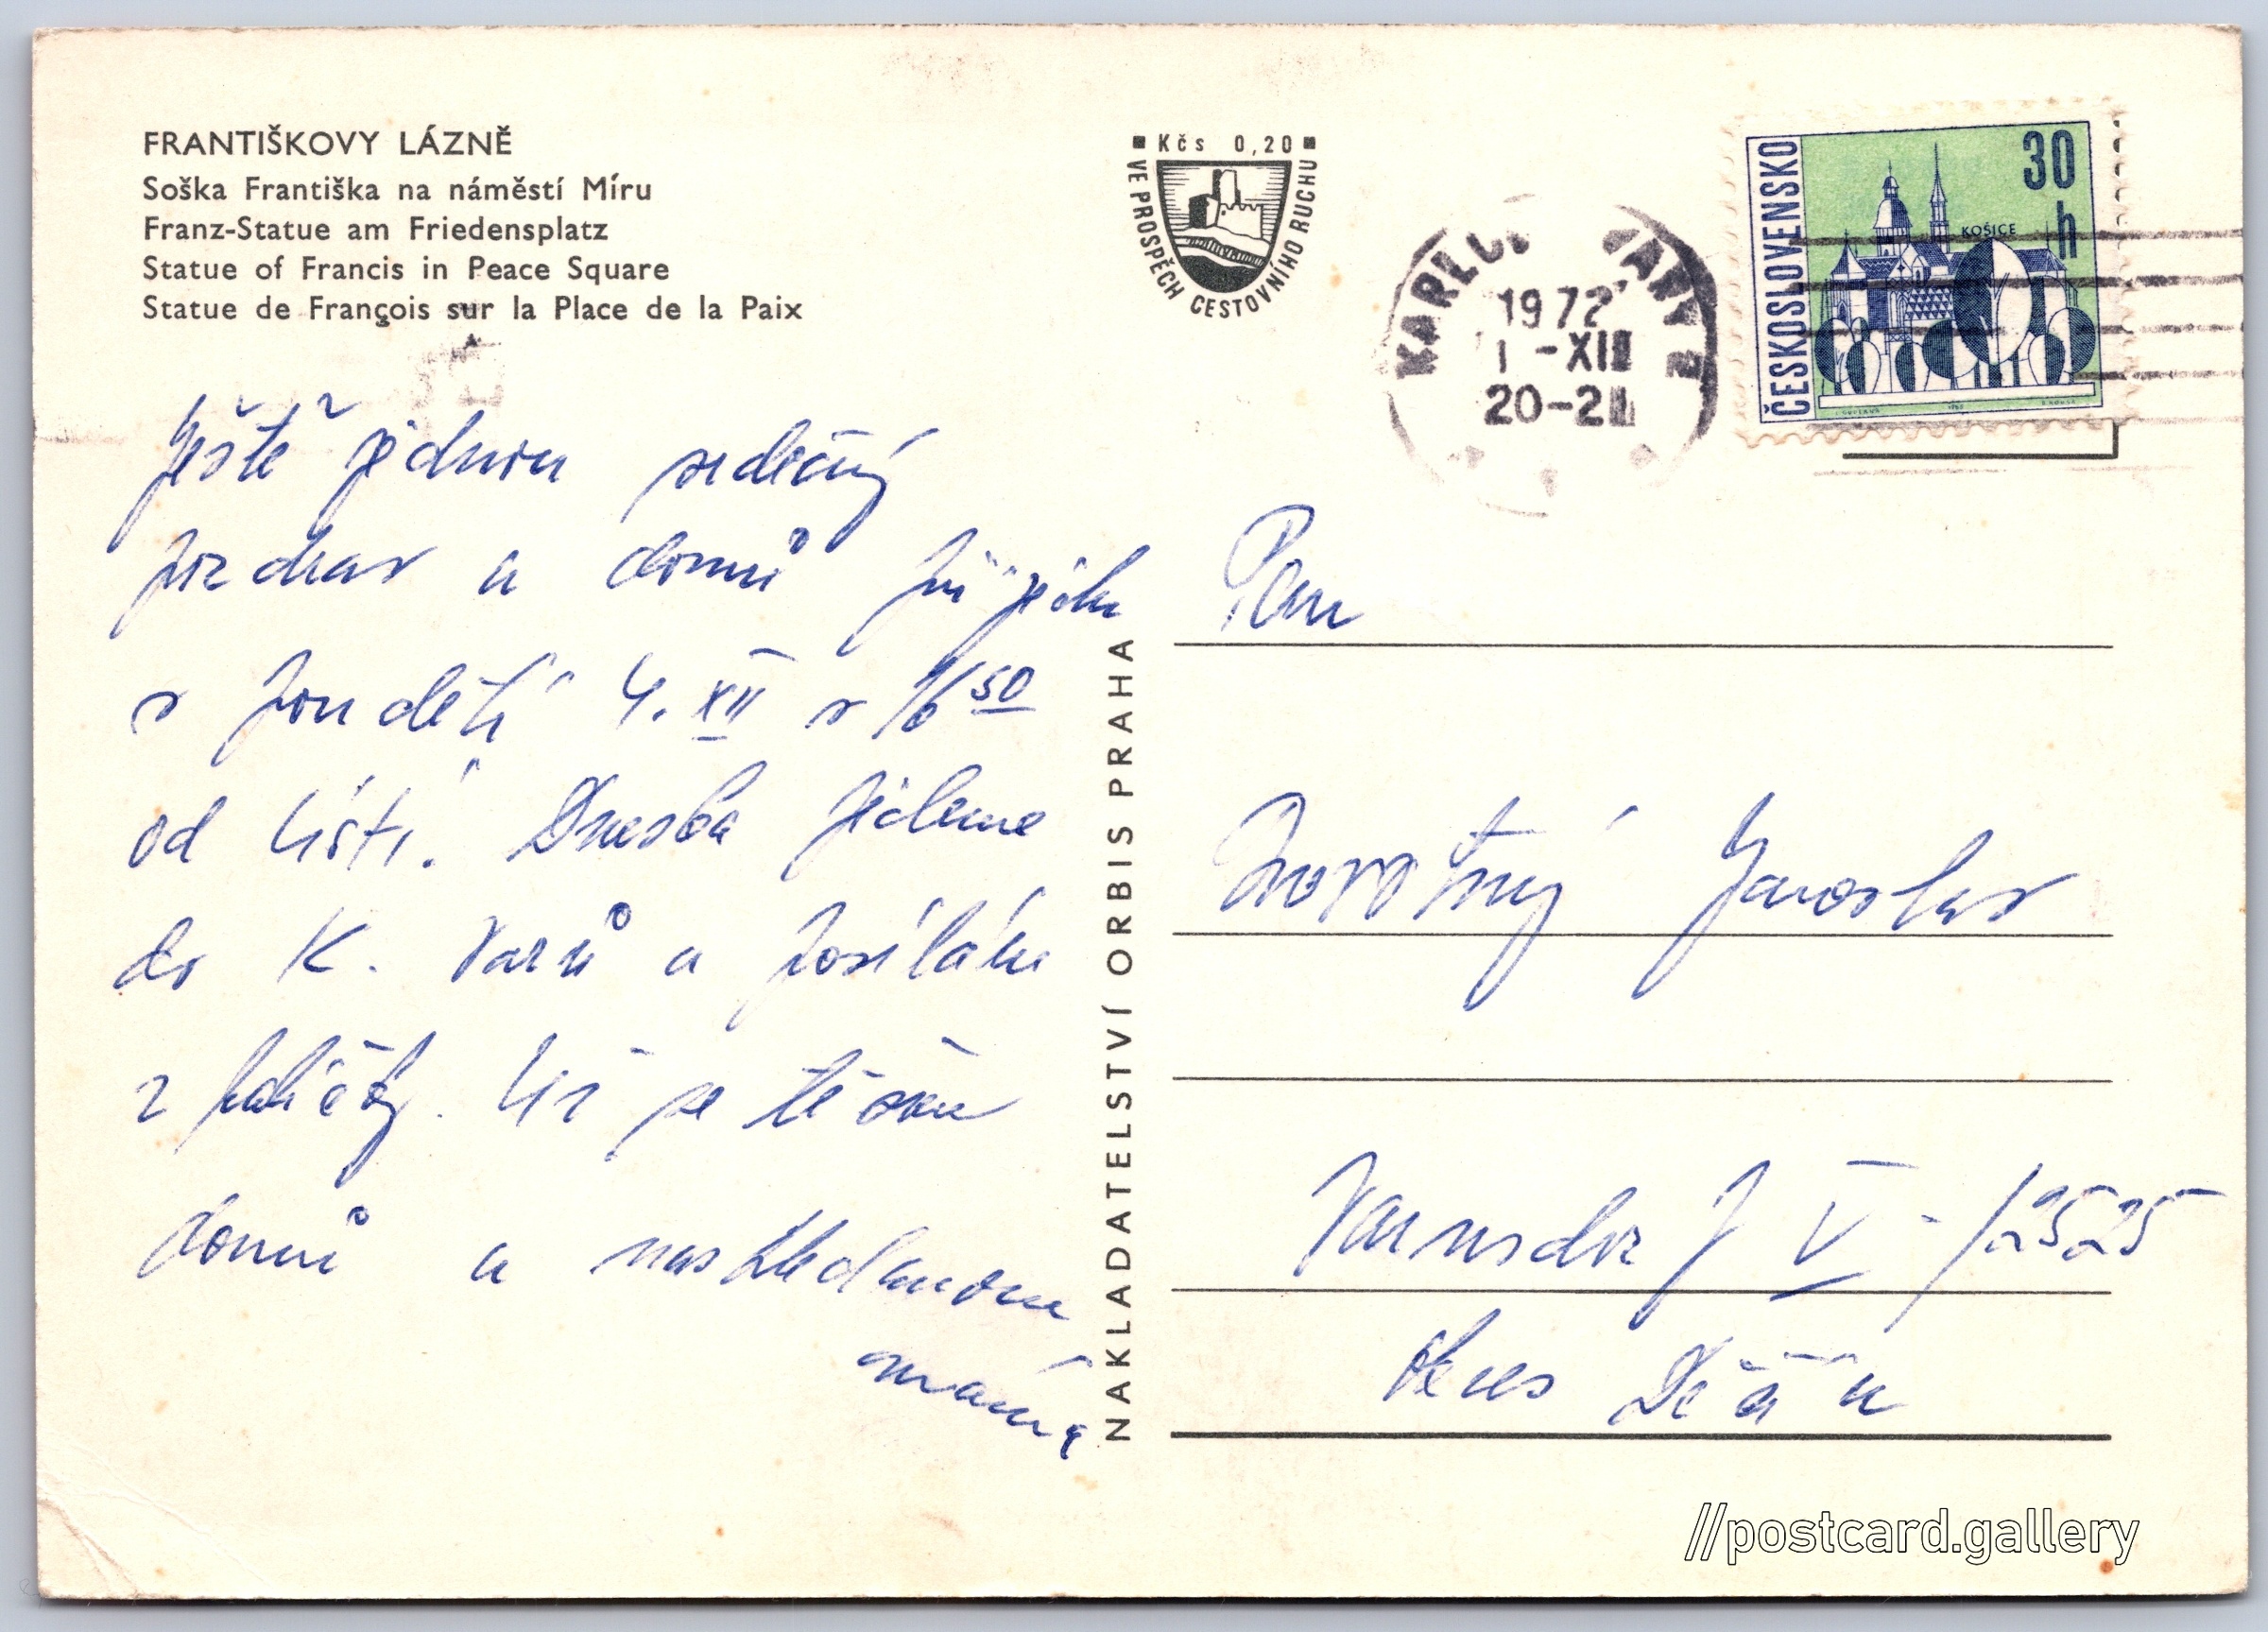 FRANTIŠKOVY LÁZNĚ
Soška Františka na náměstí Míru
Franz-Statue am Friedensplatz
Statue of Francis in Peace Square
Statue de François sur la Place de la Paix
Kčs 0,20
VE PROSPĚCH CESTOVNÍHO RUCHU
KARLOVY VARY 2
1972
1 -XII
20-21
ČESKOSLOVENSKO
30
h
KOŠICE
Ještě jednou srdečný
pozdrav a domů přijedu
v pondělí 4. XII v 16 50
od Ústí. Dneska jedeme
do K. Varů a posílám
Už se těším
domů a nashledanou
máma
NAKLADATELSTVÍ ORBIS PRAHA
Pan
Novotný Jaroslav
Varnsdorf V - /2525
okres Děčín
//postcard.gallery